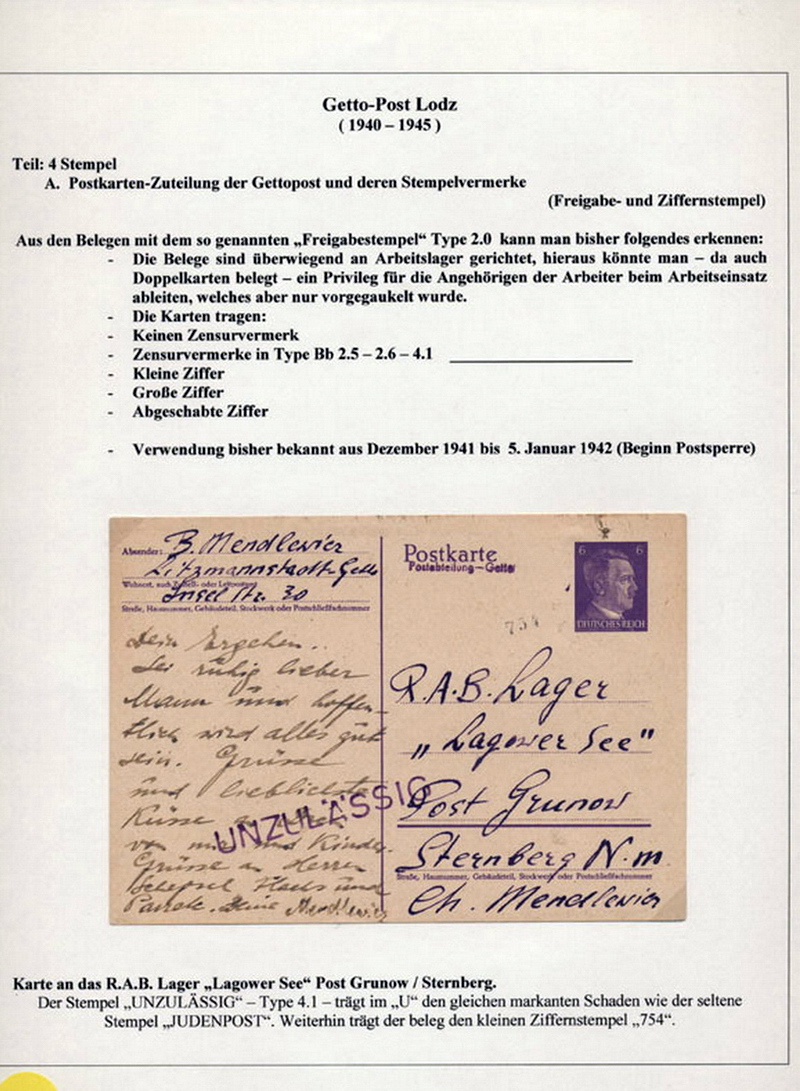 Getto-Post Lodz
( 1940 – 1945 )
Teil: 4 Stempel
A. Postkarten-Zuteilung der Gettopost und deren Stempelvermerke
(Freigabe- und Ziffernstempel)
Aus den Belegen mit dem so genannten „Freigabestempel“ Type 2.0 kann man bisher folgendes erkennen:
- Die Belege sind überwiegend an Arbeitslager gerichtet, hieraus könnte man – da auch
Doppelkarten belegt – ein Privileg für die Angehörigen der Arbeiter beim Arbeitseinsatz
ableiten, welches aber nur vorgegaukelt wurde.
- Die Karten tragen:
- Keinen Zensurvermerk
- Zensurvermerke in Type Bb 2.5 – 2.6 – 4.1
- Kleine Ziffer
- Große Ziffer
- Abgeschabte Ziffer
- Verwendung bisher bekannt aus Dezember 1941 bis 5. Januar 1942 (Beginn Postsperre)
Absender: B. Mendlewicz
Litzmannstadt-Getto
Wohnort, auch Zustell- oder Leitpostamt
Insel Str. 30
Straße, Hausnummer, Gebäudeteil, Stockwerk oder Postschließfachnummer
Dein Ergehen..
Sei ruhig lieber
Mann und hoffen-
tlich wird alles gut
sein. Grüsse
und lieblichste
Küsse
von und Kinder.
Grüsse an Herren
und
Deine Mendlewicz
UNZULÄSSIG
Postkarte
Postabteilung-Getto
6 6
DEUTSCHES REICH
754
R.A.B. Lager
„Lagower See"
Post Grunow
Sternberg N.m
Straße, Hausnummer, Gebäudeteil, Stockwerk oder Postschließfachnummer
Ch. Mendlewicz
Karte an das R.A.B. Lager „Lagower See“ Post Grunow / Sternberg.
Der Stempel „UNZULÄSSIG“ – Type 4.1 – trägt im „U“ den gleichen markanten Schaden wie der seltene
Stempel „JUDENPOST“. Weiterhin trägt der beleg den kleinen Ziffernstempel „754“.